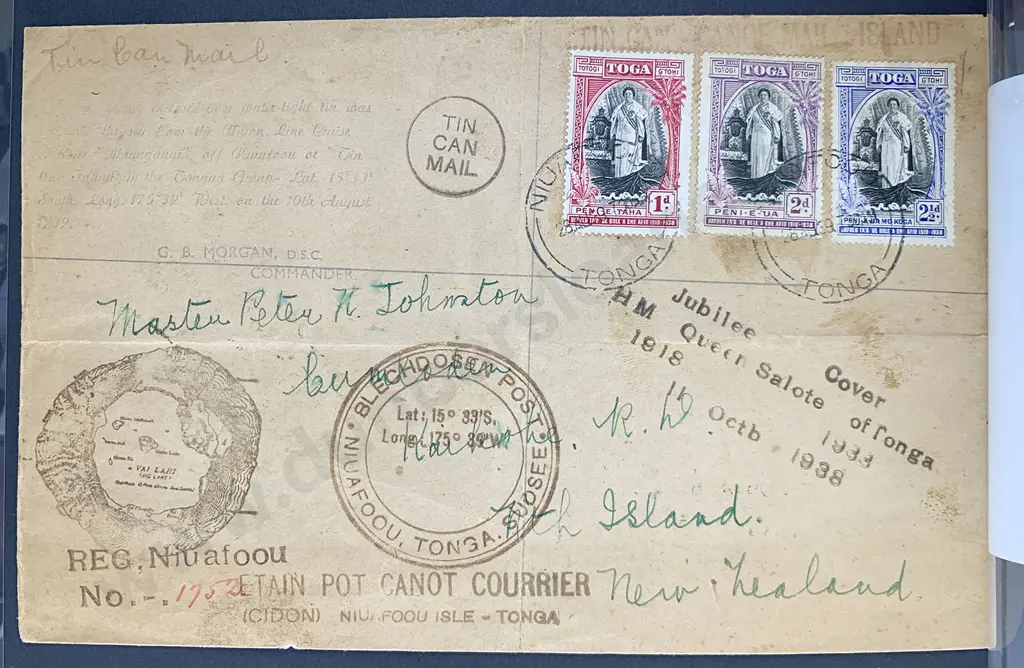 Tin Can Mail
TIN CAN CANOE MAIL ISLAND
enclosed in a water-tight tin was
from the Union Line Cruise
off Niuafoou or "Tin
in the Tongan Group- Lat. 15°33'
South Long. 175°39' West. on the 10th August
G. B. MORGAN, D.S.C.
COMMANDER.
TIN
CAN
MAIL
TOTOGI TOGA G'TOHI
PENI-E-TAHA 1d.
1918-1938
TOTOGI TOGA G'TOHI
PENI-E-UA 2d.
1918-1938
TOTOGI TOGA G'TOHI
PENI-E-UA MO KOSA 2½d.
1918-1938
TONGA
TONGA
Master Peter N. Johnston
R. D.
Nth Island.
New Zealand.
Jubilee Cover
HM Queen Salote of Tonga
1918 1933
11 Octb 1938
BLECHDOSEN POST
NIUAFOOU, TONGA, SUDSEE
Lat: 15° 33'S.
Long: 175° 39'W
VAI LAHI
(BIG LAKE)
REG. Niuafoou
No.-. 1752
ETAIN POT CANOT COURRIER
(CIDON) NIUAFOOU ISLE - TONGA